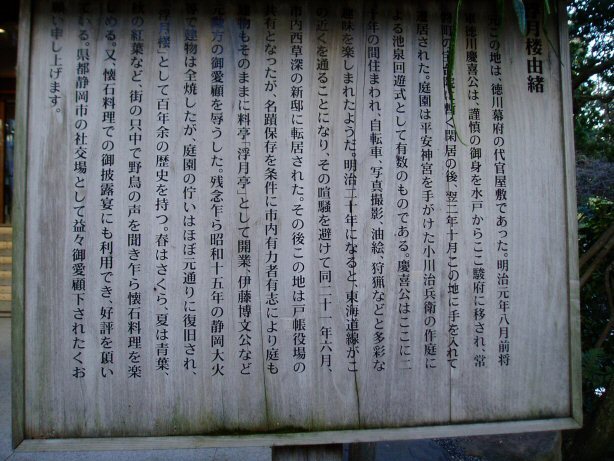 月楼由緒
元この地は、徳川幕府の代官屋敷であった。明治元年八月前将
徳川慶喜公は、謹慎の御身を水戸からここ駿府に移され、常
暫く閑居の後、翌二年十月この地に手を入れて
居された。庭園は平安神宮を手がけた小川治兵衛の作庭に
よる池泉回遊式として有数のものである。慶喜公はここに二
年の間住まわれ、自転車、写真撮影、油絵、狩猟などと多彩な
趣味を楽しまれたようだ。明治二十年になると、東海道線がこ
の近くを通ることになり、その喧騒を避けて同二十一年六月、
市内西草深の新邸に転居された。その後この地は戸帳役場の
共有となったが、名蹟保存を条件に市内有力者有志により庭も
物もそのままに料亭「浮月亭」として開業、伊藤博文公など
元勲方の御愛顧を辱うした。残念乍ら昭和十五年の静岡大火
等で建物は全焼したが、庭園の佇いはほぼ元通りに復旧され、
浮月楼」として百年余の歴史を持つ。春はさくら、夏は青葉、
秋の紅葉など、街の只中で野鳥の声を聞き乍ら懐石料理を楽
しめる。又、懐石料理での御披露宴にも利用でき、好評を頂い
ている。県都静岡市の社交場として益々御愛顧下されたくお
願い申し上げます。